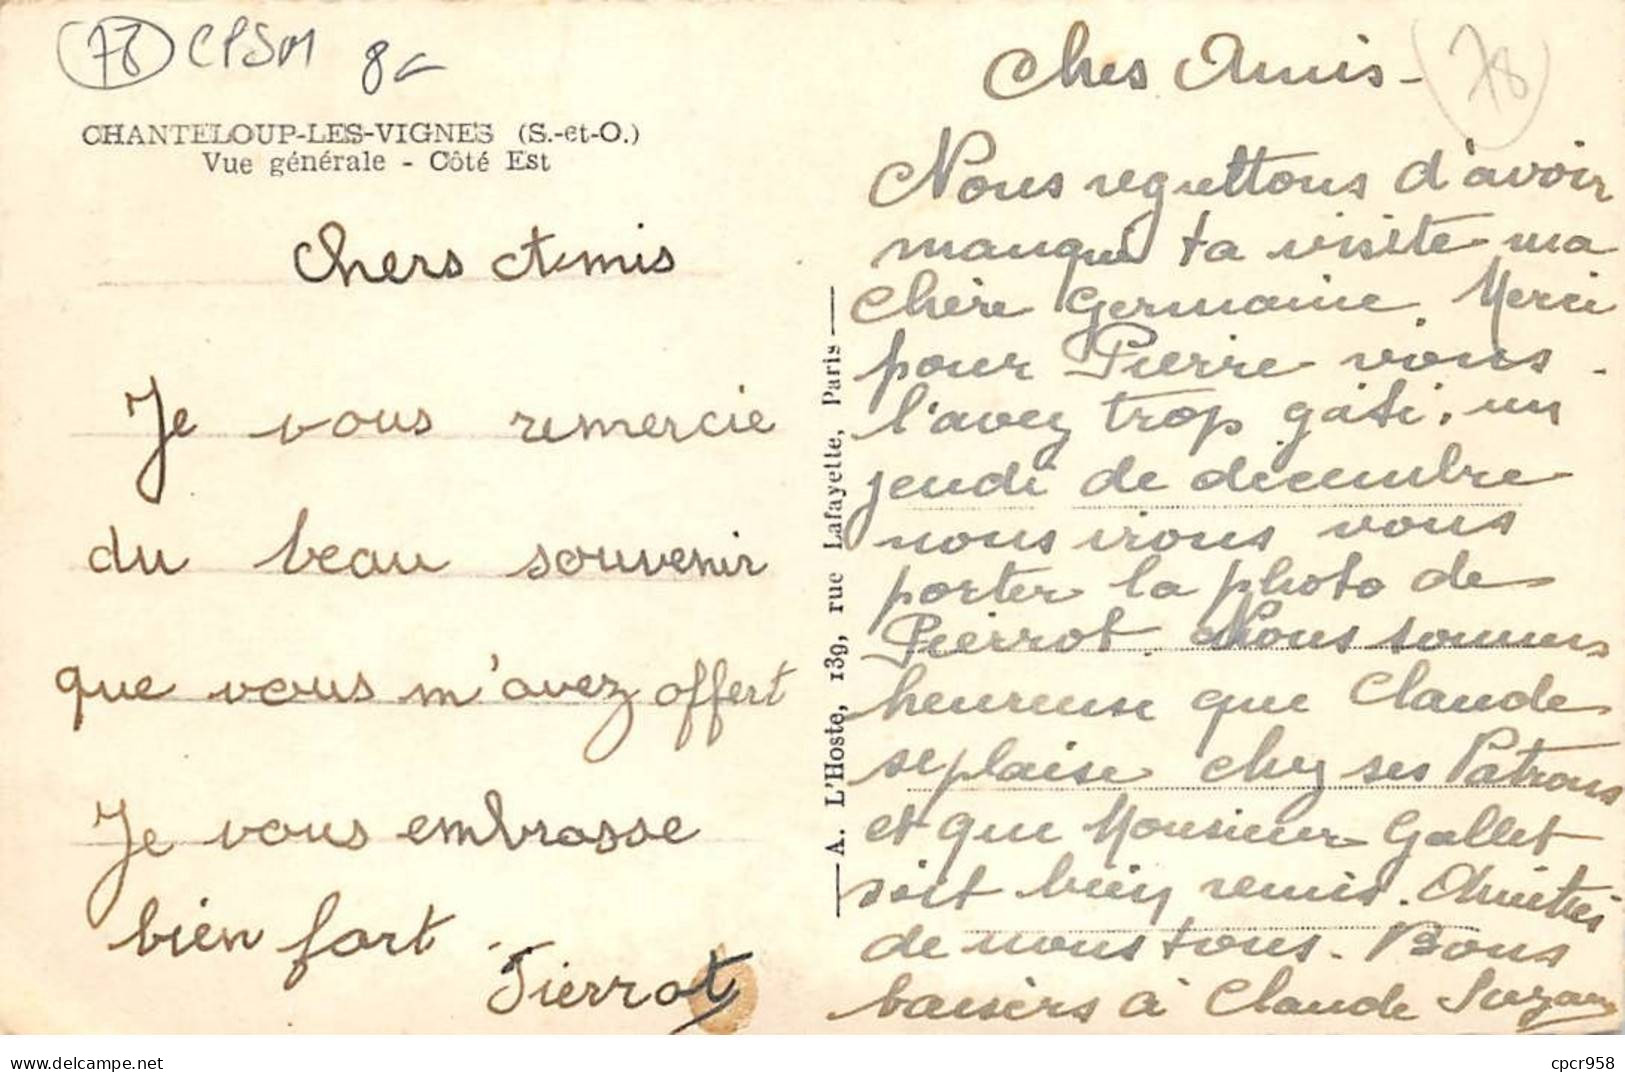 78 CPSM 8€
CHANTELOUP-LES-VIGNES (S.-et-O.)
Vue générale - Côté Est
Chers Amis
Je vous remercie
du beau souvenir
que vous m'avez offert
Je vous embrasse
bien fort.
Pierrot
A. L'Hoste, 139, rue Lafayette, Paris
78
Chers Amis -
Nous regrettons d'avoir
manqué ta visite ma
Chère Germaine. Merci
pour Pierre vous
l'avez trop gâté, un
jeudi de decembre
nous irons vous
porter la photo de
Pierrot. Nous sommes
heureuse que Claude
se plaise chez ses Patrons
et que Monsieur Gallet
soit bien remis. Amitiés
de nous tous. Bons
baisers à Claude Suzanne
delcampe.net
cpcr958